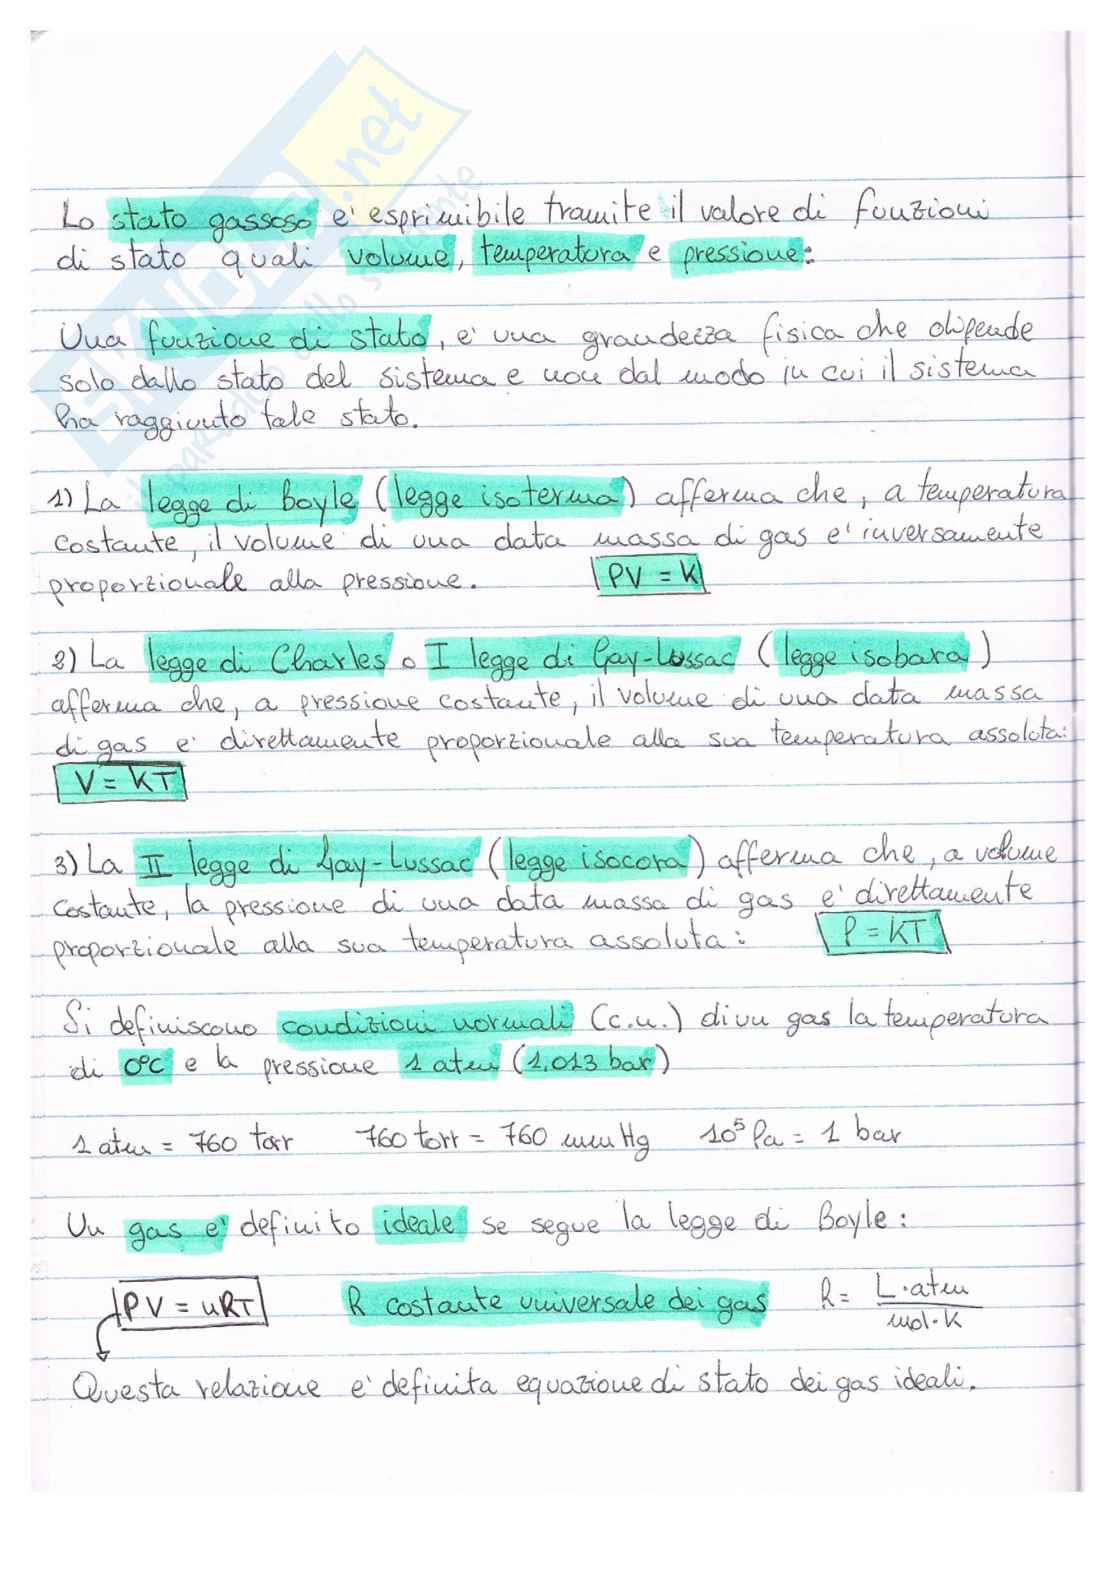 Lo stato gassoso e' esprimibile tramite il valore di funzioni
di stato quali volume, temperatura e pressione:
Una funzione di stato, e' una grandezza fisica che dipende
solo dallo stato del sistema e non dal modo in cui il sistema
ha raggiunto tale stato.
1) La legge di Boyle (legge isoterma) afferma che, a temperatura
costante, il volume di una data massa di gas e' inversamente
proporzionale alla pressione. PV = K
2) La legge di Charles o I legge di Gay-Lussac (legge isobara)
afferma che, a pressione costante, il volume di una data massa
di gas e' direttamente proporzionale alla sua temperatura assoluta:
V = KT
3) La II legge di Gay-Lussac (legge isocora) afferma che, a volume
costante, la pressione di una data massa di gas e' direttamente
proporzionale alla sua temperatura assoluta: P = KT
Si definiscono condizioni normali (c.n.) di un gas la temperatura
di 0°C e la pressione 1 atm (1,013 bar)
1 atm = 760 torr 760 torr = 760 mmHg 10⁵ Pa = 1 bar
Un gas e' definito ideale se segue la legge di Boyle:
PV = nRT R costante universale dei gas R = L·atm / mol·K
Questa relazione e' definita equazione di stato dei gas ideali.
SKUOLA.net